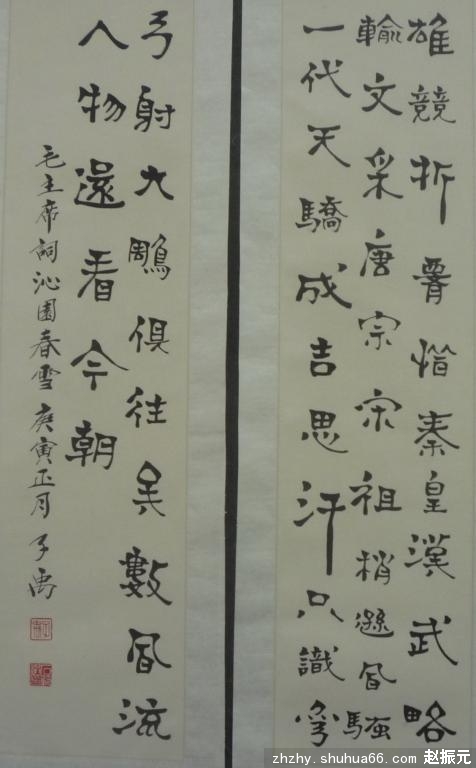 雄競折腰惜秦皇漢武略
輸文采唐宗宋祖稍遜風騷
一代天驕成吉思汗只識彎
弓射大鵰俱往矣數風流
人物還看今朝
毛主席詞沁園春雪庚寅正月子禹
zhzhy.shuhua66.com 赵振元